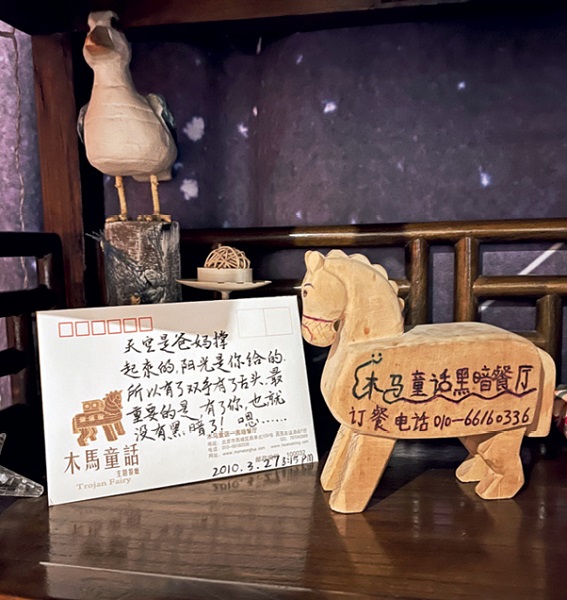 天空是爸妈撑
起來的,阳光是你给的.
所以有了双手有了舌头.最
重要的是,有了你,也就
没有黑暗了! 嗯......
木馬童話
主題餐廳
Trojan Fairy
木马童话—黑暗餐厅
2010.3.27 3:15 PM
木马童话黑暗餐厅
订餐电话 010-66160336